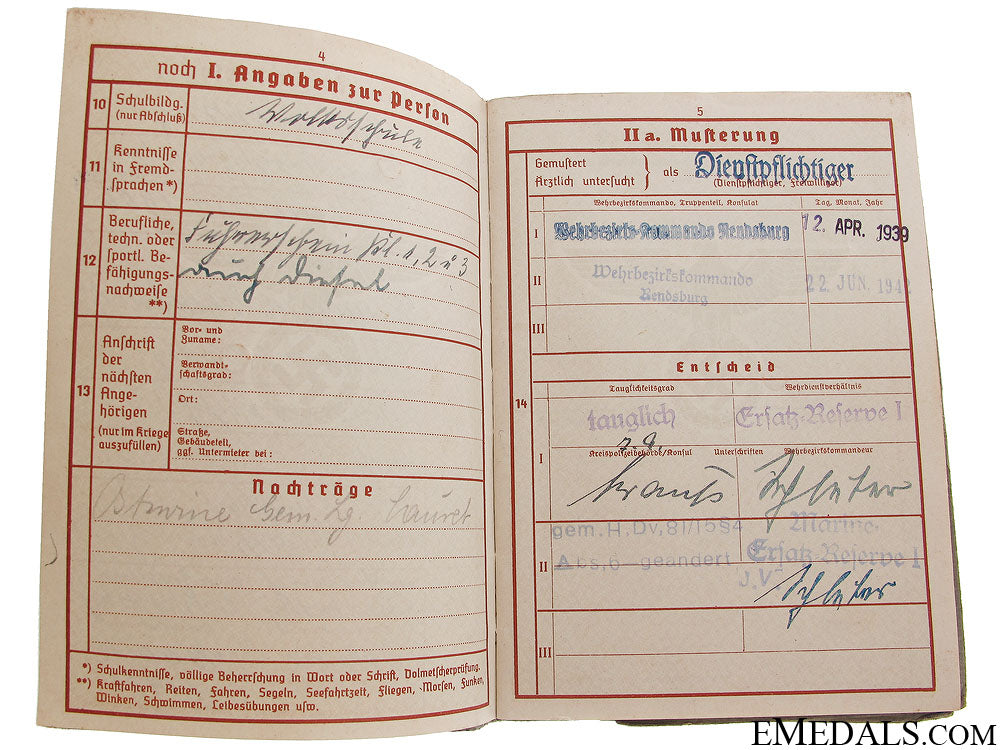 4
noch I. Angaben zur Person
10
Schulbildg.
(nur Abschluß)
Volksschule
11
Kenntnisse
in Fremd-
sprachen *)
12
Berufliche,
techn. oder
sportl. Be-
fähigungs-
nachweise
**)
Führerschein Kl. 1, 2 u 3
auch Diesel
13
Anschrift
der
nächsten
Ange-
hörigen
(nur im Kriege
auszufüllen)
Vor- und
Zuname:
Verwandt-
schaftsgrad:
Ort:
Straße,
Gebäudeteil,
ggf. Untermieter bei:
Nachträge
*) Schulkenntnisse, völlige Beherrschung in Wort oder Schrift, Dolmetscherprüfung.
**) Kraftfahren, Reiten, Fahren, Segeln, Seefahrtzeit, Fliegen, Morsen, Funken,
Winken, Schwimmen, Leibesübungen usw.
5
IIa. Musterung
14
Gemustert
Ärztlich untersucht } als Dienstpflichtiger
(Dienstpflichtiger, Freiwilliger)
Wehrbezirkskommando, Truppenteil, Konsulat
Tag, Monat, Jahr
I
Wehrbezirks-Kommando Rendsburg
12. APR. 1939
II
Wehrbezirkskommando
Rendsburg
22. JUN. 194
III
Entscheid
Tauglichkeitsgrad
Wehrdienstverhältnis
I
tauglich
Ersatz-Reserve I
Kreispolizeibehörde/Konsul Unterschriften Wehrbezirkskommandeur
Schlüter
II
gem. H. Dv, 81/15 § 4
Abs, 6 geändert
Marine-
Ersatz-Reserve I
J.V.
Schlüter
III
EMEDALS.COM